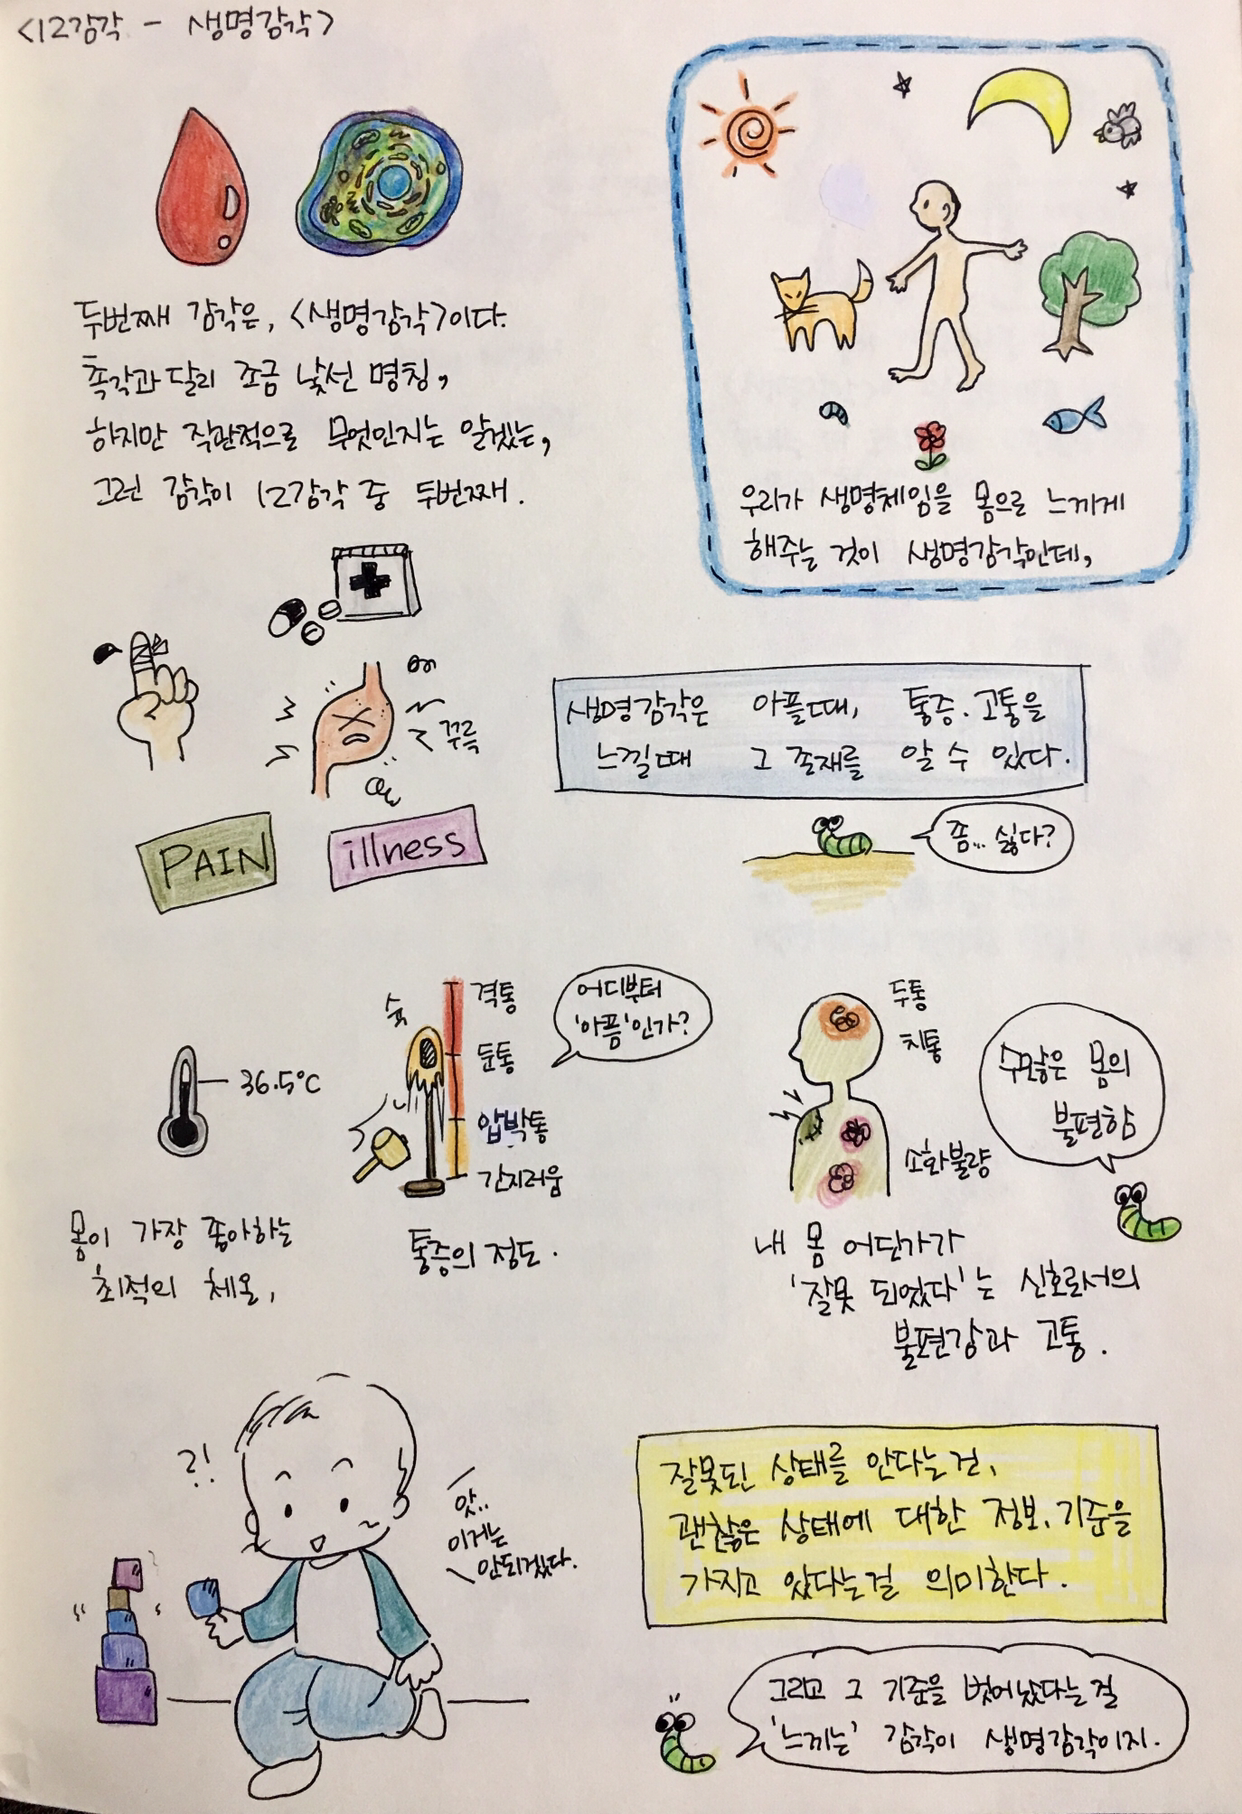 <12감각 - 생명감각>
두번째 감각은, <생명감각>이다.
촉각과 달리 조금 낯선 명칭,
하지만 직관적으로 무엇인지는 알겠는,
그런 감각이 12감각 중 두번째.
우리가 생명체임을 몸으로 느끼게
해주는 것이 생명감각인데,
꾸륵
PAIN
illness
생명감각은 아플때, 통증.고통을
느낄때 그 존재를 알 수 있다.
쫌... 싫다?
36.5°C
몸이 가장 좋아하는
최적의 체온,
슉
격통
둔통
압박통
간지러움
어디부터
'아픔'인가?
통증의 정도.
두통
치통
소화불량
수많은 몸의
불편함
내 몸 어딘가가
'잘못 되었다'는 신호로서의
불편감과 고통.
?!
앗..
이거는
안되겠다.
잘못된 상태를 안다는건,
괜찮은 상태에 대한 정보, 기준을
가지고 있다는걸 의미한다.
그리고 그 기준을 벗어났다는 걸
'느끼는' 감각이 생명감각이지.